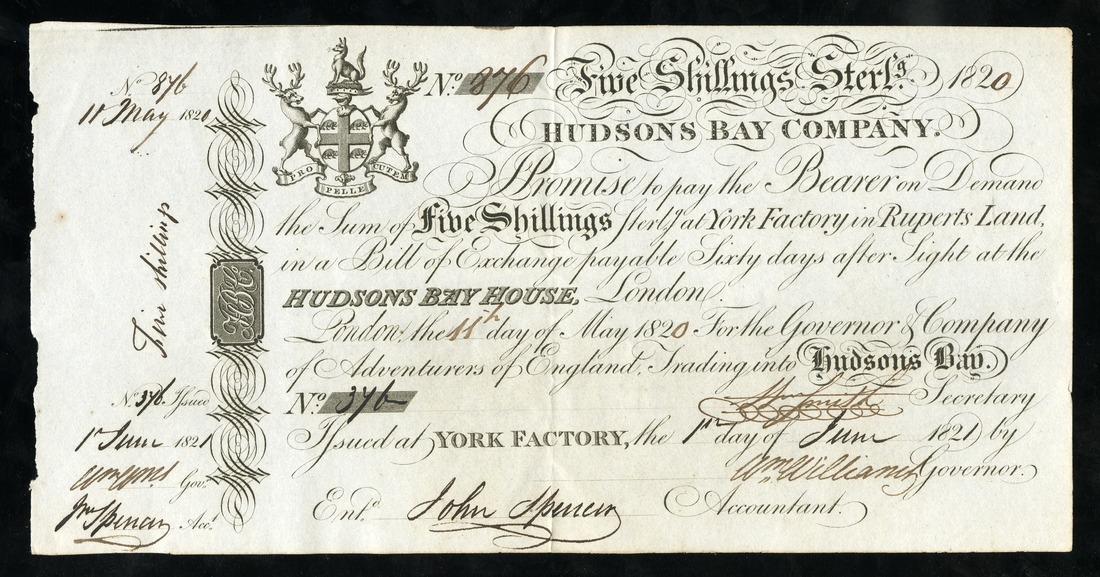 No. 876
11 May 1820
Five Shillings
No. 376. Issued
1st June 1821
Govr.
Jno Spencer Acct.
PRO PELLE CUTEM
No. 876 Five Shillings Sterlg. 1820
HUDSONS BAY COMPANY.
I Promise to pay the Bearer on Demand
the Sum of Five Shillings Sterlg. at York Factory in Ruperts Land,
in a Bill of Exchange payable Sixty days after Sight at the
HUDSONS BAY HOUSE, London.
London, the 11th day of May 1820 For the Governor & Company
of Adventurers of England, Trading into Hudsons Bay.
No. 376 Wm Smith Secretary
Issued at YORK FACTORY, the 1st day of June 1821 by
Wm. Williams Governor.
Entd. John Spencer Accountant.
HBC